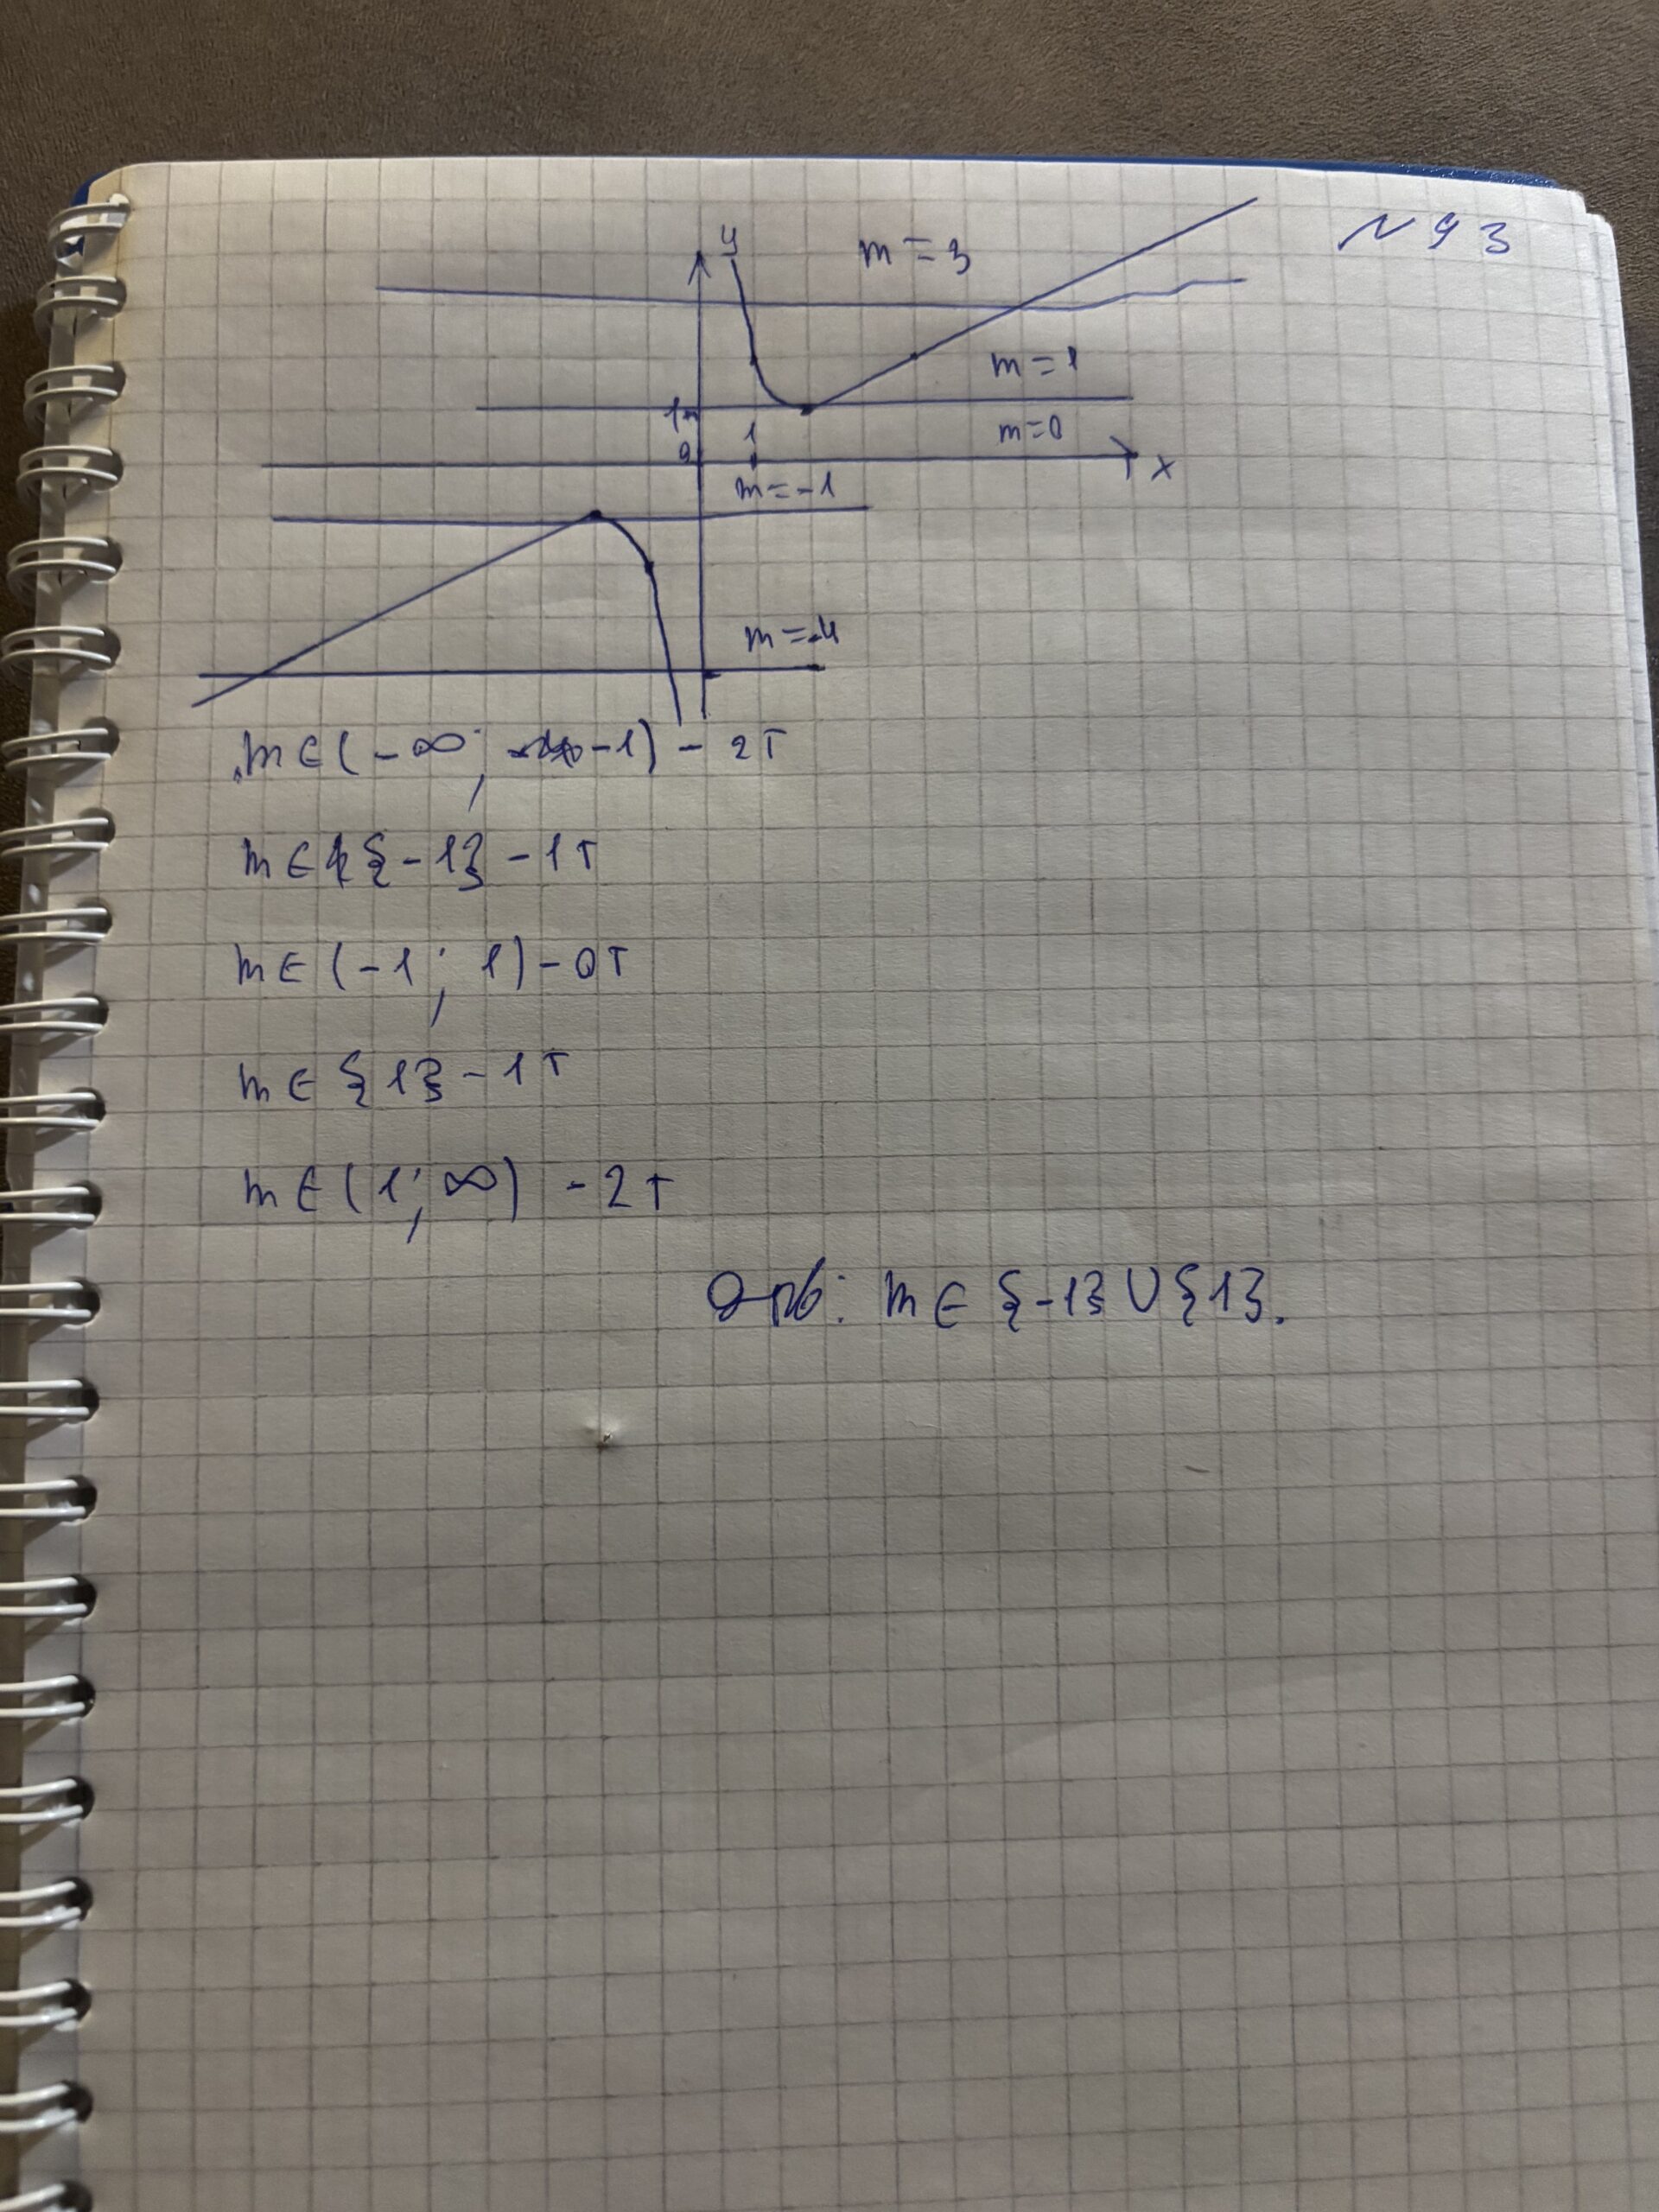 N 93
y
m = 3
m = 1
1
m=0
1
0
x
m=-1
m=-4
m∈(-∞; -1) - 2т
m∈{-1} - 1т
m∈(-1; 1) - 0т
m∈{1} - 1т
m∈(1; ∞) - 2т
Отв: m∈{-1}∪{1}.